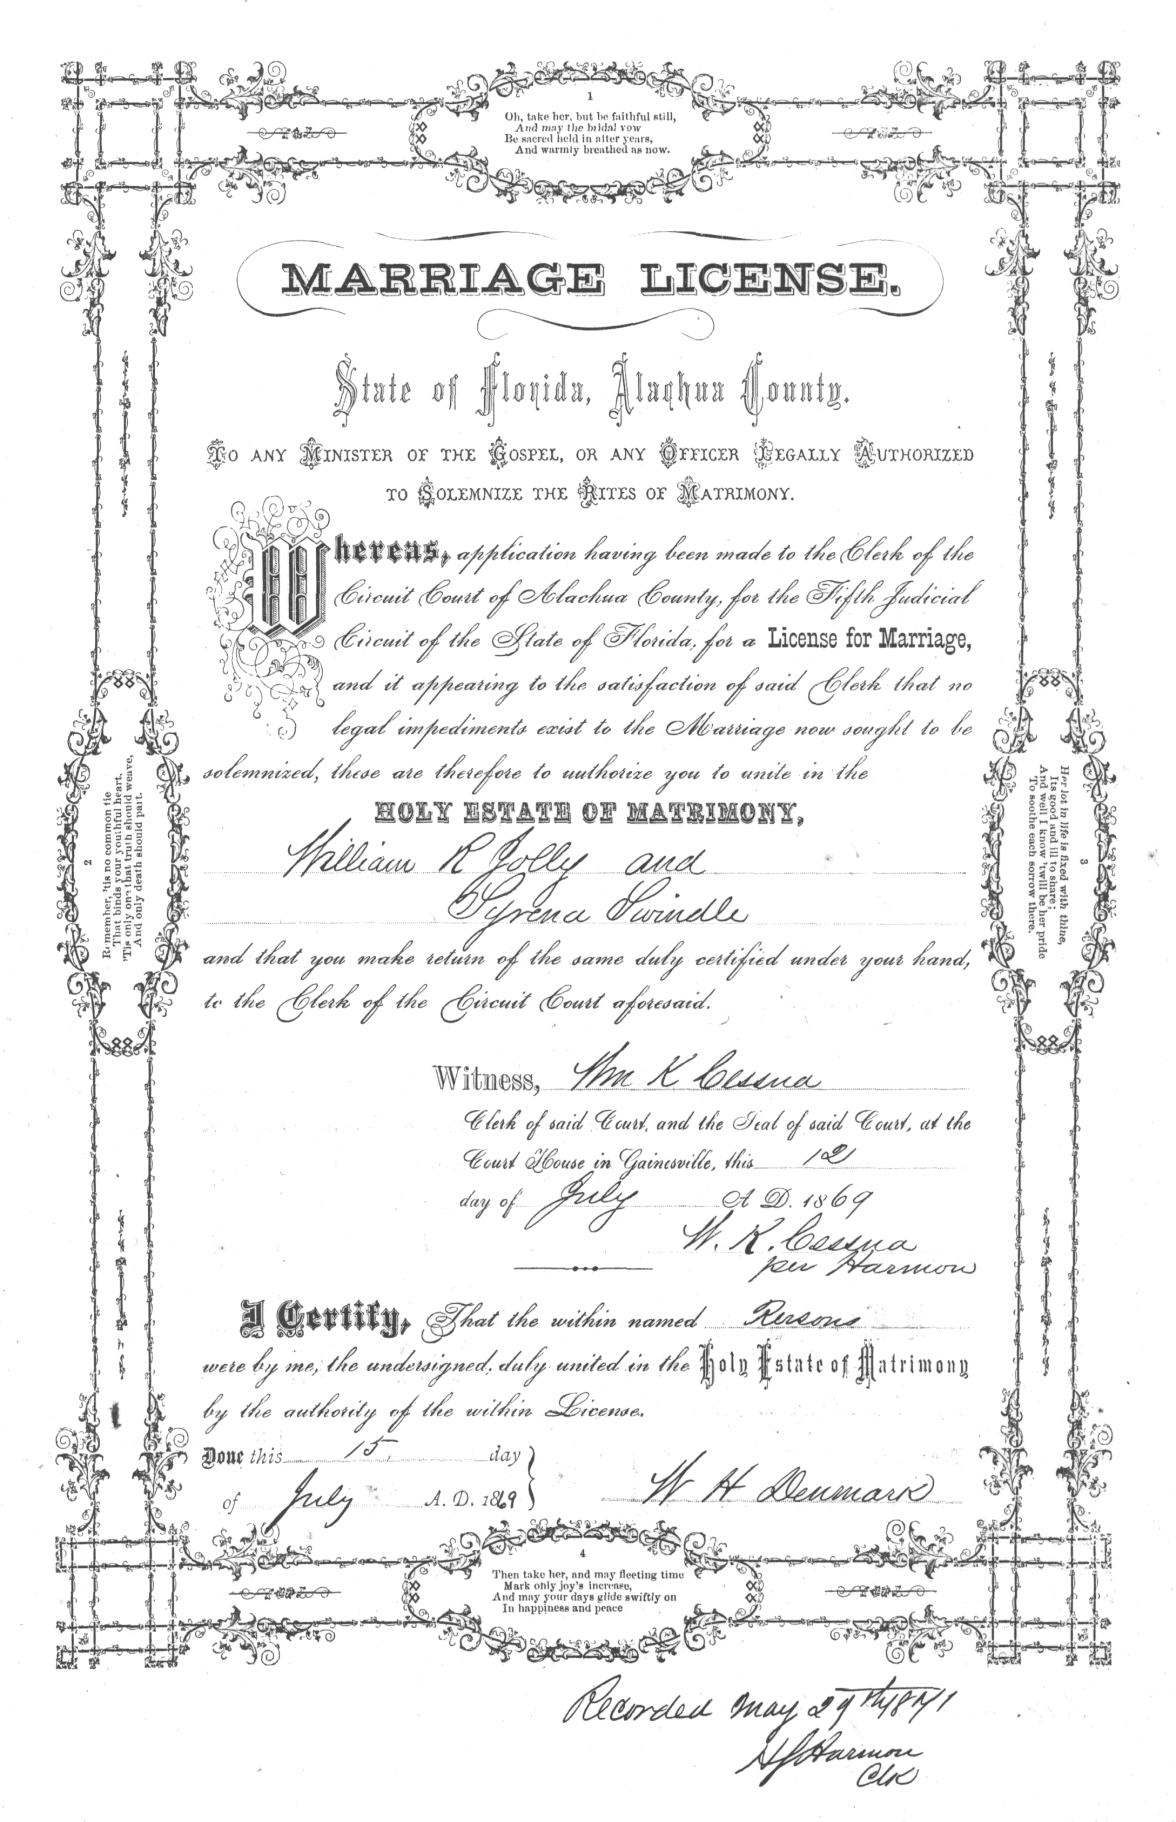 1
Oh, take her, but be faithful still,
And may the bridal vow
Be sacred held in after years,
And warmly breathed as now.
MARRIAGE LICENSE.
State of Florida, Alachua County.
To any Minister of the Gospel, or any Officer Legally Authorized
to Solemnize the Rites of Matrimony.
Whereas, application having been made to the Clerk of the
Circuit Court of Alachua County, for the Fifth Judicial
Circuit of the State of Florida, for a License for Marriage,
and it appearing to the satisfaction of said Clerk that no
legal impediments exist to the Marriage now sought to be
solemnized, these are therefore to authorize you to unite in the
HOLY ESTATE OF MATRIMONY,
William R Jolly and
Syrena Swindle
and that you make return of the same duly certified under your hand,
to the Clerk of the Circuit Court aforesaid.
Witness, Wm K Cessna
Clerk of said Court, and the Seal of said Court, at the
Court House in Gainesville, this 12
day of July A D. 1869
W. K. Cessna
per Harmon
I Certify, That the within named Persons
were by me, the undersigned, duly united in the Holy Estate of Matrimony
by the authority of the within License.
Done this 15, day
of July A. D. 1869
W H Denmark
2
Remember, 'tis no common tie
That binds your youthful heart,
'Tis only one that truth should weave,
And only death should part.
3
Her lot in life is fixed with thine,
Its good and ill to share;
And well I know 'twill be her pride
To soothe each sorrow there.
4
Then take her, and may fleeting time
Mark only joy's increase,
And may your days glide swiftly on
In happiness and peace
Recorded May 29th 1871
Harmon
Clk